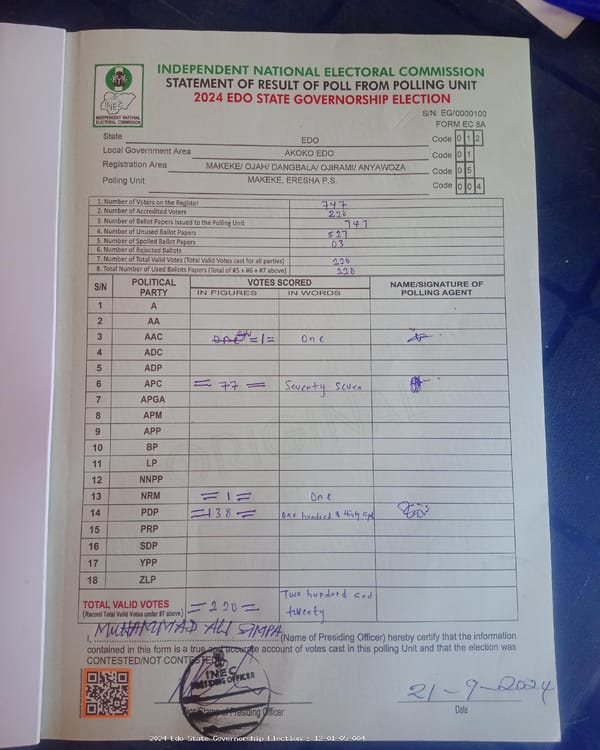 INDEPENDENT NATIONAL ELECTORAL COMMISSION
STATEMENT OF RESULT OF POLL FROM POLLING UNIT
2024 EDO STATE GOVERNORSHIP ELECTION
INEC
INDEPENDENT NATIONAL
ELECTORAL COMMISSION
S/N: EG/0000100
FORM EC 8A
State EDO Code 0 1 2
Local Government Area AKOKO EDO Code 0 1
Registration Area MAKEKE/ OJAH/ DANGBALA/ OJIRAMI/ ANYAWOZA Code 0 5
Polling Unit MAKEKE, ERESHA P.S. Code 0 0 4
1. Number of Voters on the Register 747
2. Number of Accredited Voters 220
3. Number of Ballot Papers Issued to the Polling Unit 747
4. Number of Unused Ballot Papers 527
5. Number of Spoiled Ballot Papers 03
6. Number of Rejected Ballots
7. Number of Total Valid Votes (Total Valid Votes cast for all parties) 220
8. Total Number of Used Ballots Papers (Total of #5 + #6 + #7 above) 220
S/N POLITICAL PARTY VOTES SCORED NAME/SIGNATURE OF POLLING AGENT
IN FIGURES IN WORDS
1 A
2 AA
3 AAC =1= One
4 ADC
5 ADP
6 APC = 77 = Seventy Seven
7 APGA
8 APM
9 APP
10 BP
11 LP
12 NNPP
13 NRM = 1 = One
14 PDP =138 = One hundred & thirty
15 PRP
16 SDP
17 YPP
18 ZLP
TOTAL VALID VOTES = 220 = Two hundred and twenty
(Record Total Valid Votes under #7 above)
I, MUHAMMAD ALI (Name of Presiding Officer) hereby certify that the information
contained in this form is a true and accurate account of votes cast in this polling Unit and that the election was
CONTESTED/NOT CONTESTED
INEC
PRESIDING OFFICER
of Presiding Officer
21-9-2024
Date
2024 Edo State Governorship Election : 12-01-05-004